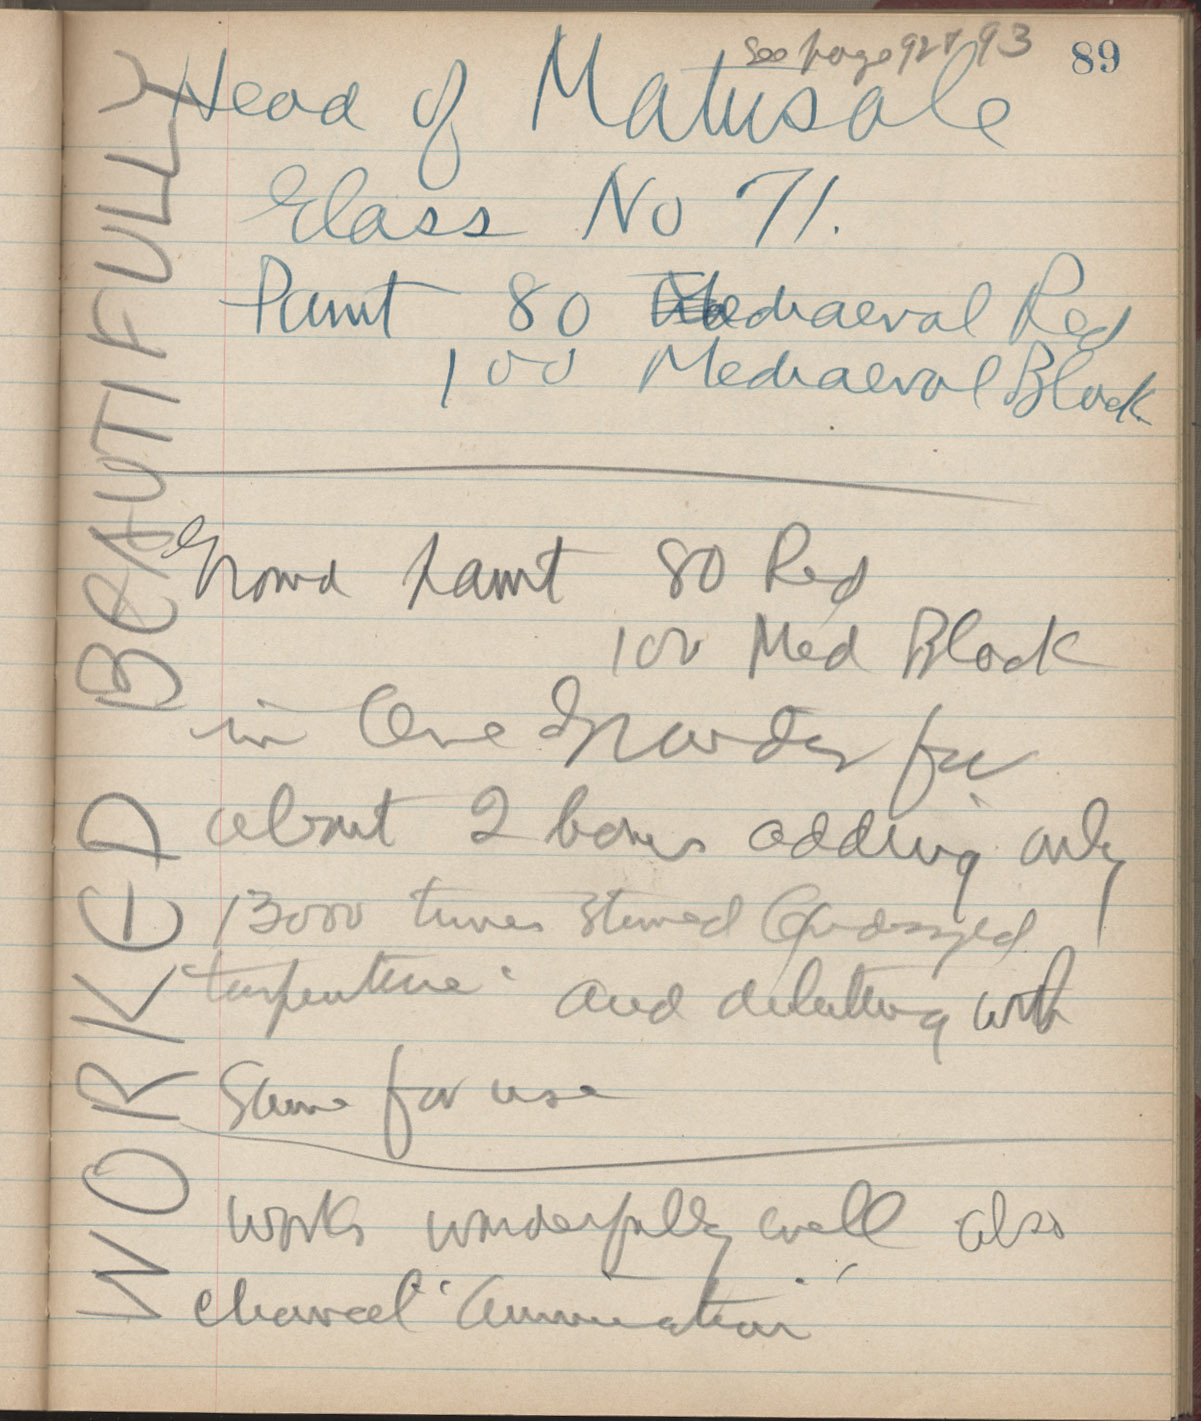 See page 92 & 93
89
Head of Matusale
Glass No 71.
Paint 80 Mediaeval Red
100 Mediaeval Black
Ground paint 80 Red
100 Med Black
in One Grinder for
about 2 hours adding only
13000 times stirred
turpentine and diluting with
Same for use
works wonderfully well also
charcoal
WORKED BEAUTIFULLY